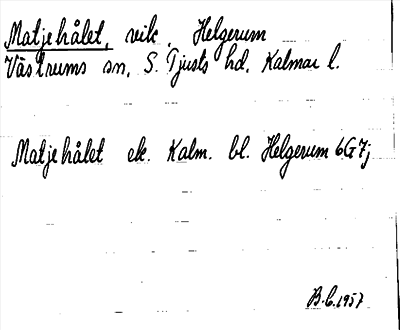 Matjehålet, vik. Helgerum
Västrums sn, S. Tjusts hd. Kalmar l.
Matjehålet ek. Kalm. bl. Helgerum 6G7j
B.C. 1957